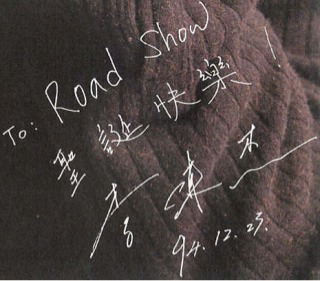 To: Road Show
聖誕快樂!
94.12.23.